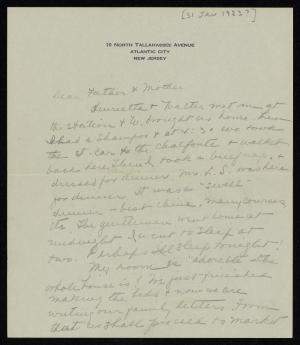 [31 Jan 1923?]
10 North Tallahassee Avenue
Atlantic City
New Jersey
Dear Father & Mother
Henrietta & Walter met me at
the station & W. brought us home. Here
I had a shampoo & at 4:30 we took
the St. car to the Chalfonte & walked
back here. Then I took a brief nap &
dressed for dinner. Mrs. L. S. was here
for dinner. It was a "swell"
dinner - best china, many courses
etc. The gentlemen went home at
midnight. I went to sleep at
two. Perhaps I'll sleep tonight!
My room is adorable - the
whole house is! We just finished
making the beds & now we are
writing our family letters. From
that we shall proceed to market